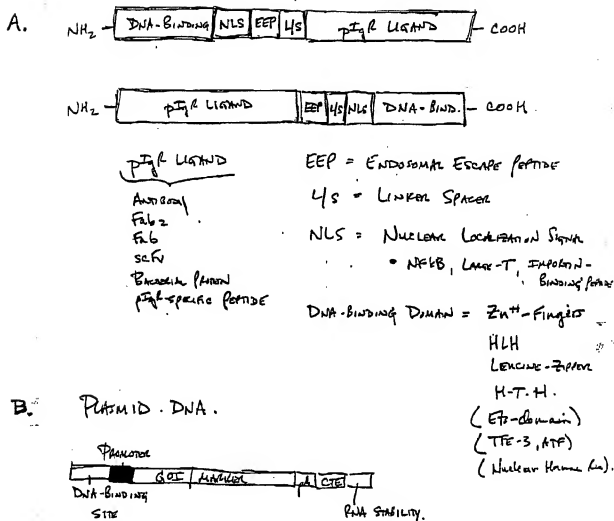 A.
NH2 - DNA-BINDING NLS EEP L/S pIgR LIGAND - COOH
NH2 - pIgR LIGAND EEP L/S NLS DNA-BIND. - COOH
pIgR LIGAND
ANTIBODY
Fab2
Fab
scFv
BACTERIAL PROTEIN
pIgR-SPECIFIC PEPTIDE
EEP = ENDOSOMAL ESCAPE PEPTIDE
L/S = LINKER SPACER
NLS = NUCLEAR LOCALIZATION SIGNAL
• NFKB, LARGE-T, IMPORTIN-
BINDING PEPTIDE
DNA-BINDING DOMAIN = Zn++-Fingers
HLH
LEUCINE-ZIPPER
H-T-H.
(Ets-domain)
(TFE-3, ATF)
(Nuclear Hormone
B. PLASMID DNA.
PROMOTOR
GOI MARKER pA CTE
DNA-BINDING
SITE
RNA STABILITY.